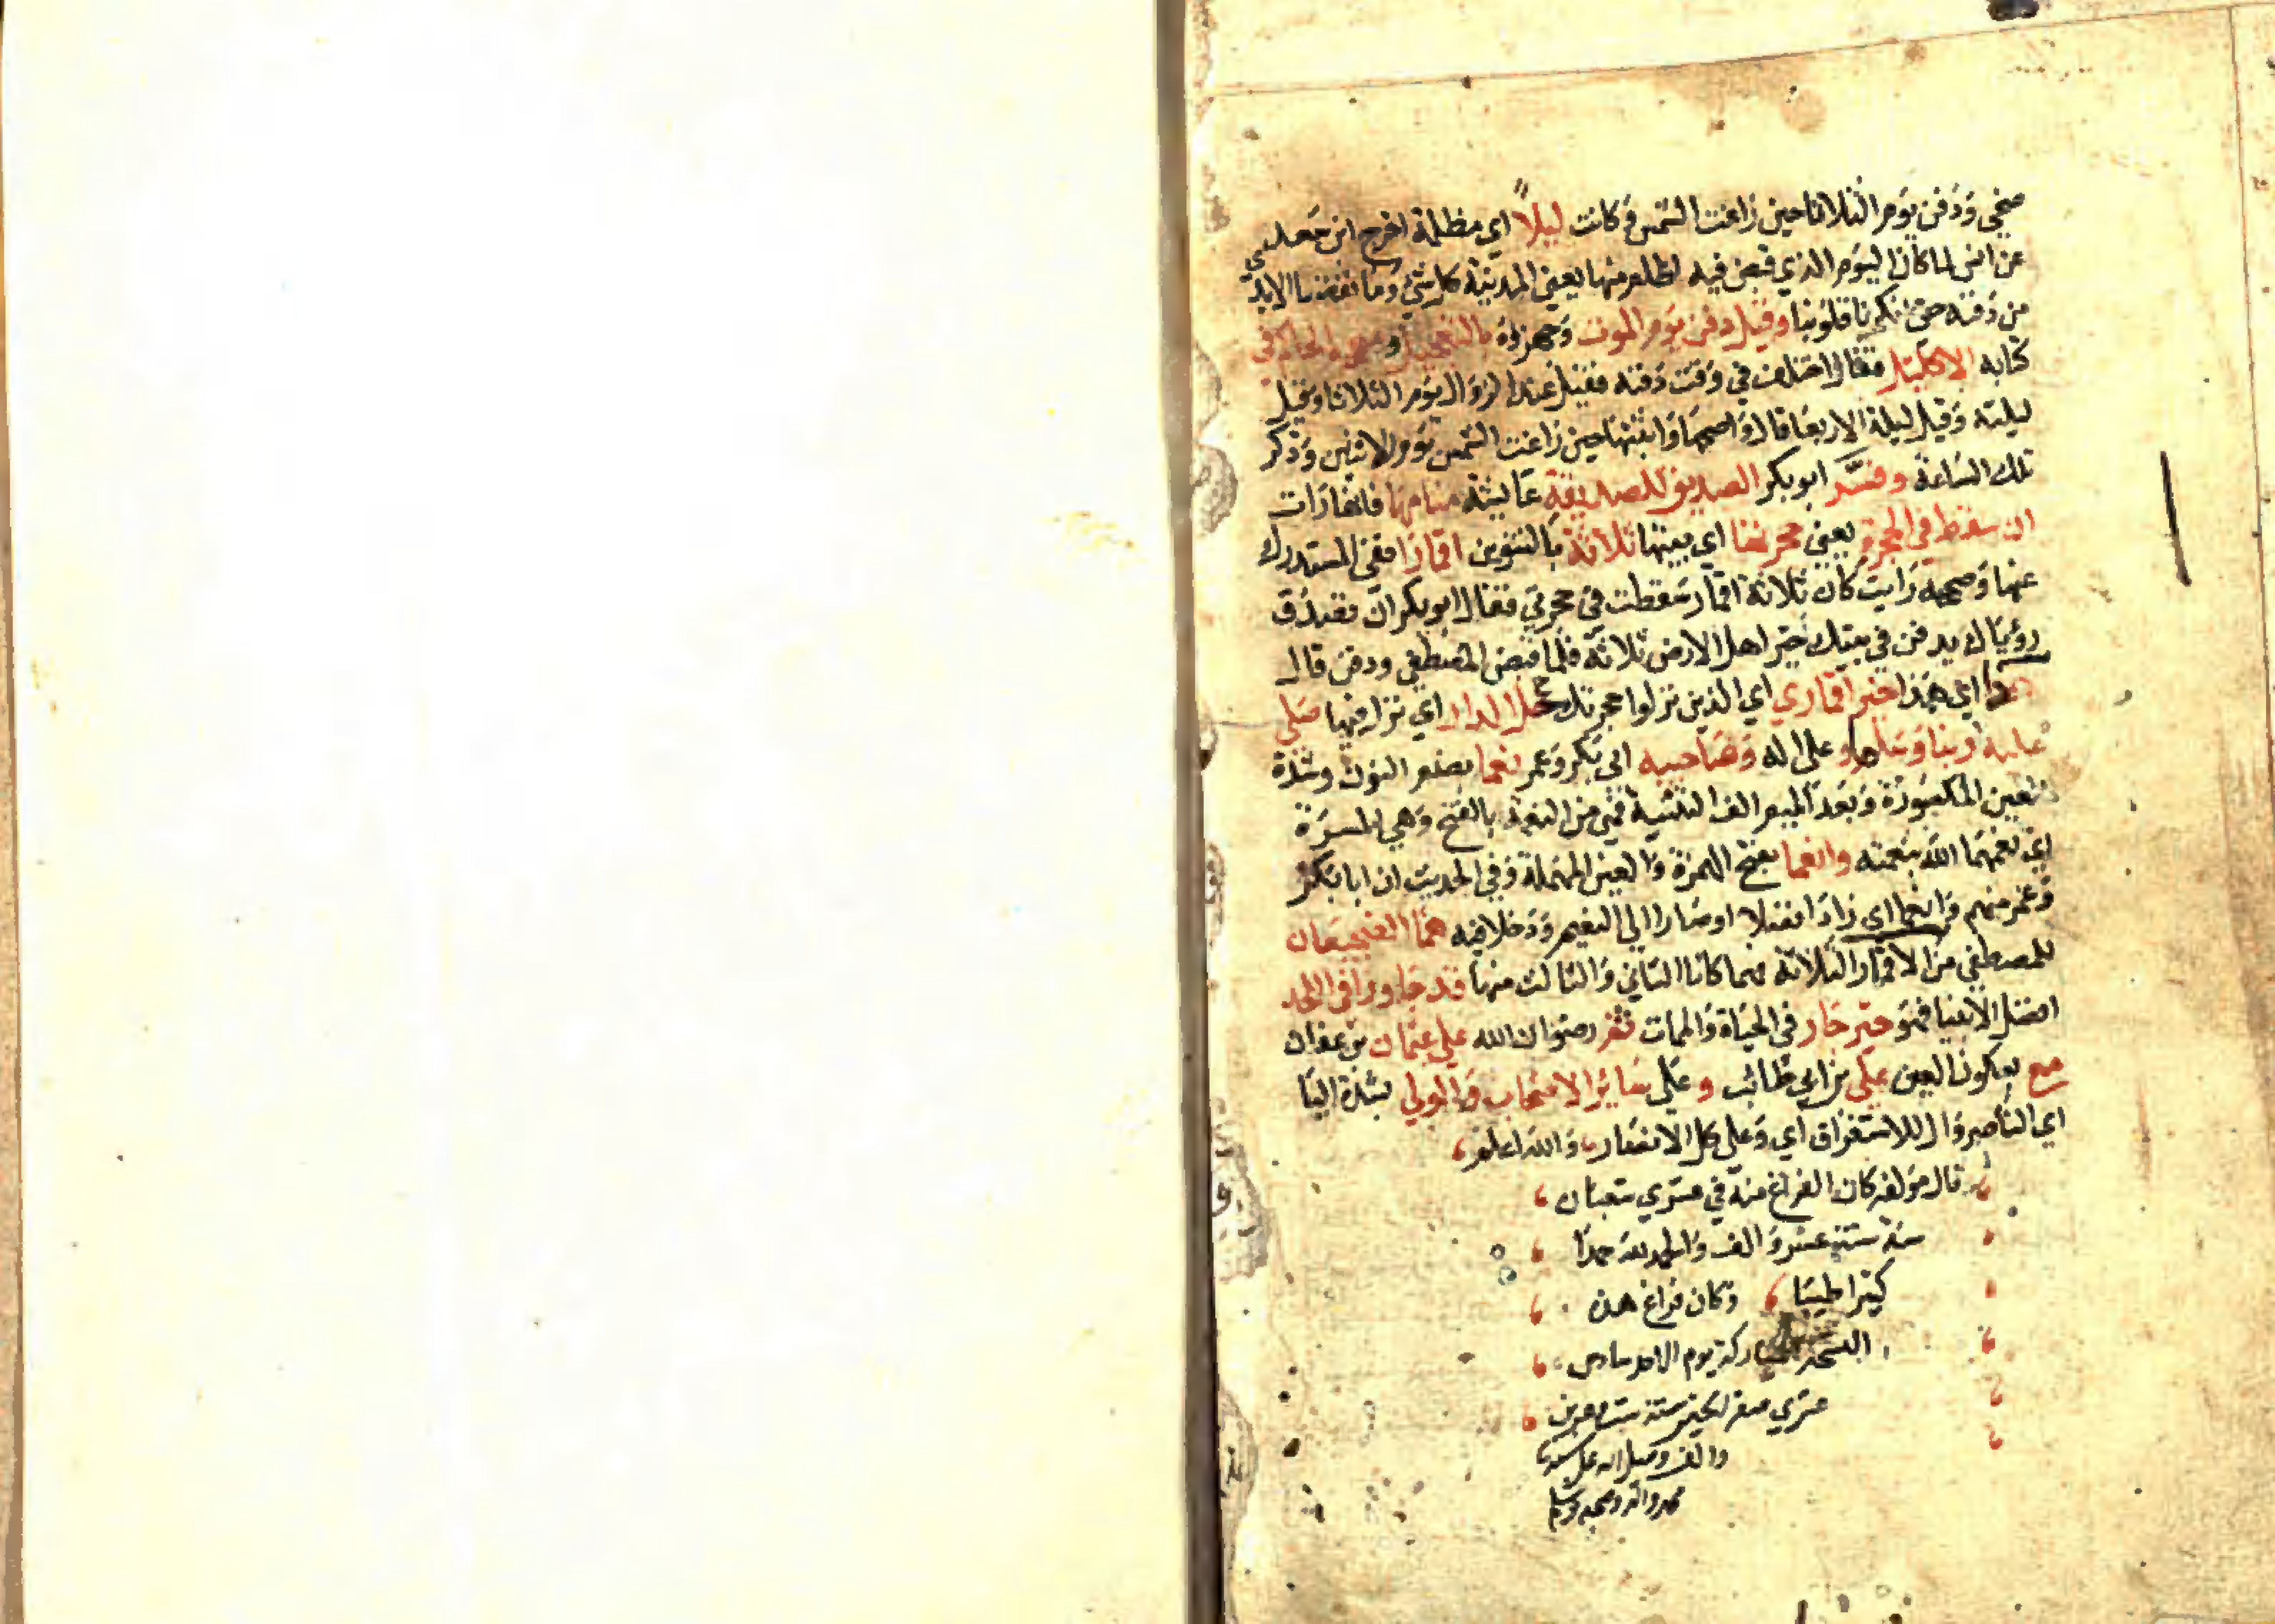 ضحى ودفن يوم الثلاثا حين زاغت الشمس وكانت ليلاً اي مظلمة اخرج ابن سعد
عن انس لما كان اليوم الذي قبض فيه اظلم منها يعني المدينة كل شيء وما نفضنا الايدي
من دفنه حتى انكرنا قلوبنا وقيل دفن يوم الموت وجهزوه بالتعجيل الحاكم في
كتابه الاكليل فقال اختلف في وقت دفنه فقيل عند الزوال يوم الثلاثا وقيل
ليلته وقيل ليلة الاربعا قال واصحها واثبتها حين زاغت الشمس يوم الاثنين وذكر
تلك الساعة وفسّر ابو بكر الصديق للصديقة عايشة منامها فانها رات
ان سقط في الحجرة يعني حجرتها اي بيتها ثلاثة بالتنوين اقمارا ففي المستدرك
عنها وصححه رايت كان ثلاثة اقمار سقطت في حجرتي فقال ابو بكر ان تصدق
رؤياك يدفن في بيتك خير اهل الارض ثلاثة فلما قبض المصطفى ودفن قال
هذا اي هذا خير اقماري اي الذين نزلوا حجرتك حل الدار اي نزل فيها صلى
عليه ربنا وسلما وعلى اله وصاحبيه ابي بكر وعمر نعما بضم النون وشدة
العين المكسورة وبعد الميم الف التثنية فهي من النعمة بالفتح وهي المسرة
اي نعمهما الله بنعمته وانعما بفتح الهمزة والعين المهملة وفي الحديث ان ابا بكر
وعمر منهم وانعما اي زادا فضلا او صارا الى النعيم ودخلا فيه هما الضجيعان
للمصطفى من الاقمار الثلاثة فهما كانا الثاني والثالث منها قد جاورا في اللحد
افضل الانبيا فهو خير جار في الحياة والممات ثم رضوان الله على عثمان بن عفان
مع بسكون العين علي بن ابي طالب وعلى سائر الاصحاب والولي بشدة اليا
اي الناصر وال للاستغراق اي وعلى كل الانصار والله اعلم
قال مؤلفه كان الفراغ منه في عشري شعبان
سنة ست عشر والف والحمد لله حمدا
كثيرا طيبا وكان فراغ هذه
النسخة المباركة يوم الاحد سادس
عشري صفر الخير سنة ست
والف وصلى الله على سيدنا
محمد واله وصحبه وسلم